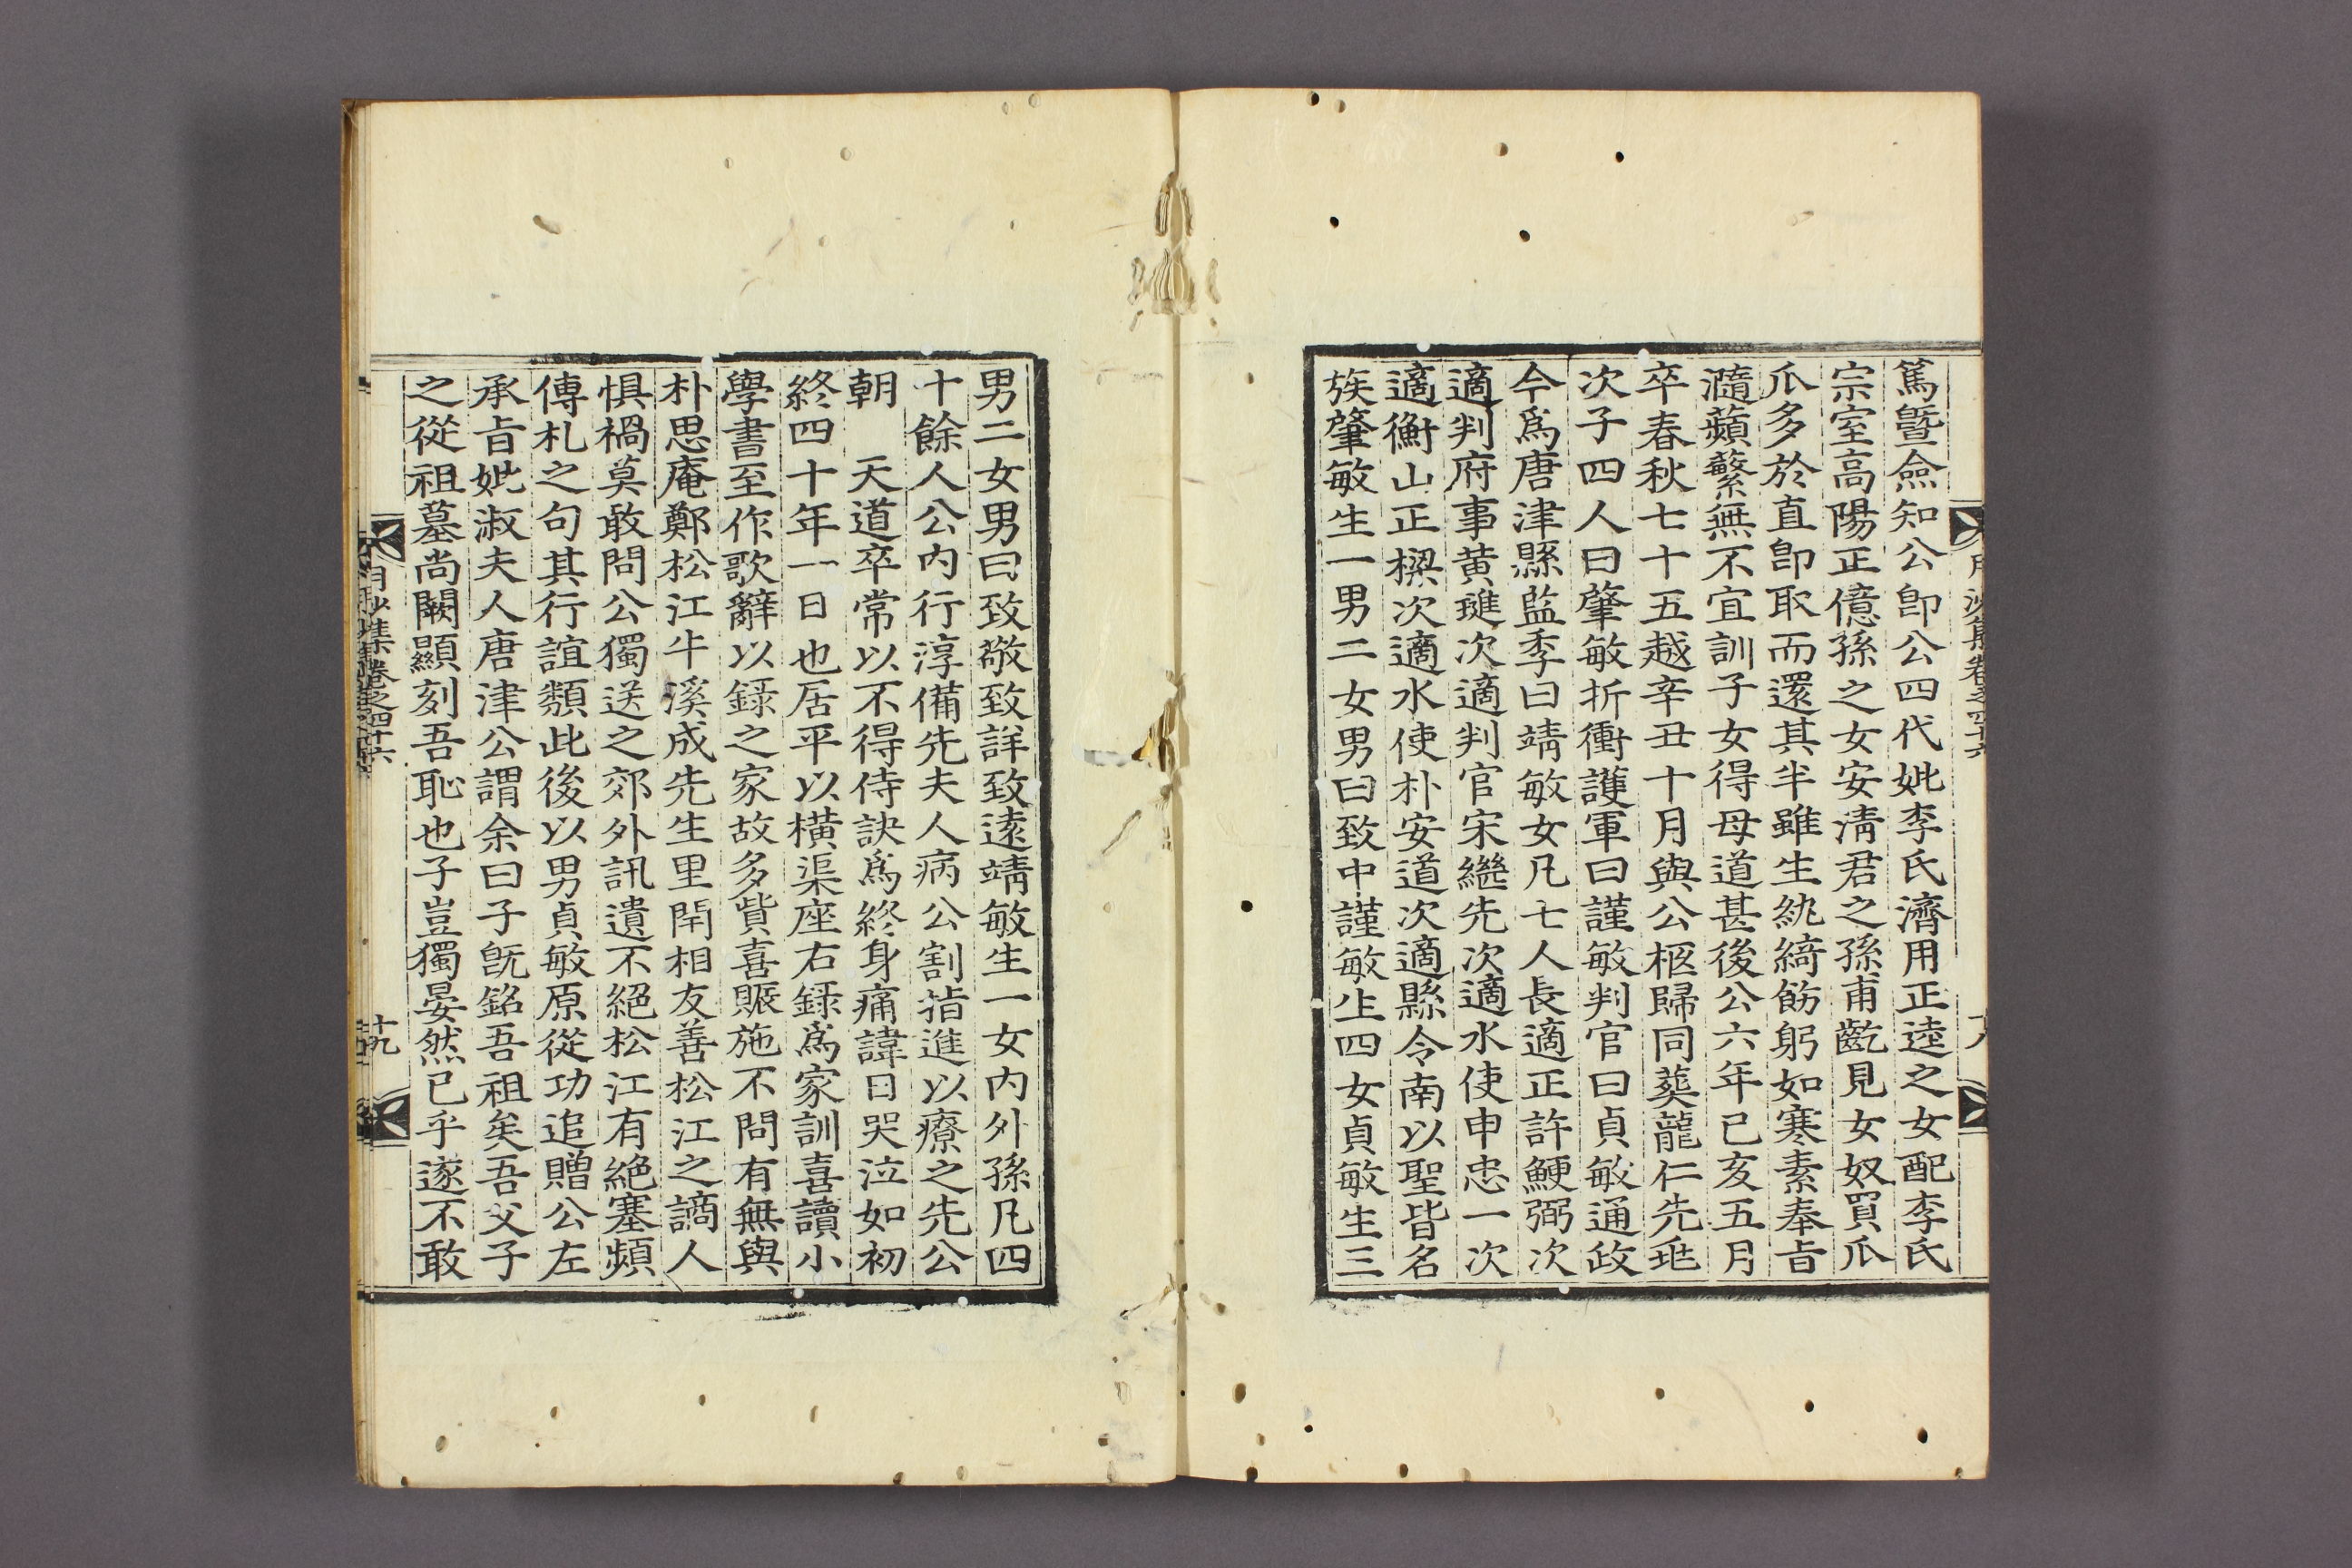 篤曁僉知公卽公四代妣李氏濟用正逵之女配李氏
宗室高陽正億孫之女安淸君之孫甫齔見女奴買瓜
瓜多於直卽取而還其半雖生紈綺飭躬如寒素奉旨
瀡蘋蘩無不宜訓子女得母道甚後公六年已亥五月
卒春秋七十五越辛丑十月與公柩歸同葬龍仁先兆
次子四人曰肇敏折衝護軍曰謹敏判官曰貞敏通政
今爲唐津縣監季曰靖敏女凡七人長適正許鯁弼次
適判府事黃璡次適判官宋繼先次適水使申忠一次
適衡山正樑次適水使朴安道次適縣令南以聖皆名
族肇敏生一男二女男曰致中謹敏生四女貞敏生三
男二女男曰致敬致詳致遠靖敏生一女內外孫凡四
十餘人公內行淳備先夫人病公割指進以療之先公
朝 天道卒常以不得侍訣爲終身痛諱日哭泣如初
終四十年一日也居平以橫渠座右錄爲家訓喜讀小
學書至作歌辭以錄之家故多貲喜賑施不問有無與
朴思庵鄭松江牛溪成先生里閈相友善松江之謫人
惧禍莫敢問公獨送之郊外訊遺不絕松江有絕塞頻
傳札之句其行誼類此後以男貞敏原從功追贈公左
承旨妣淑夫人唐津公謂余曰子旣銘吾祖矣吾父子
之從祖墓尙闕顯刻吾恥也子豈獨晏然已乎遂不敢
月沙集卷之四十六
十九